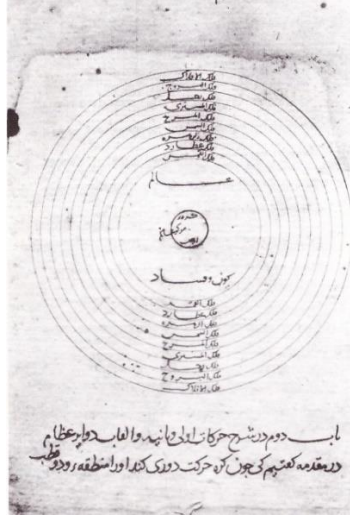 فلک الافلاک
فلک البروج
فلک زحل
فلک المشتری
فلک المریخ
فلک الشمس
فلک الزهره
فلک عطارد
فلک القمر
عالم
مرکز عالم
کون و فساد
فلک القمر
فلک عطارد
فلک الزهره
فلک الشمس
فلک المریخ
فلک المشتری
فلک زحل
فلک البروج
فلک الافلاک
باب دوم در شرح حرکات اولی و ثانیه و القاب دوایر عظام
در مقدمه کفتیم کی چون کره حرکت دوری کند او را منطقه بود و دو قطب